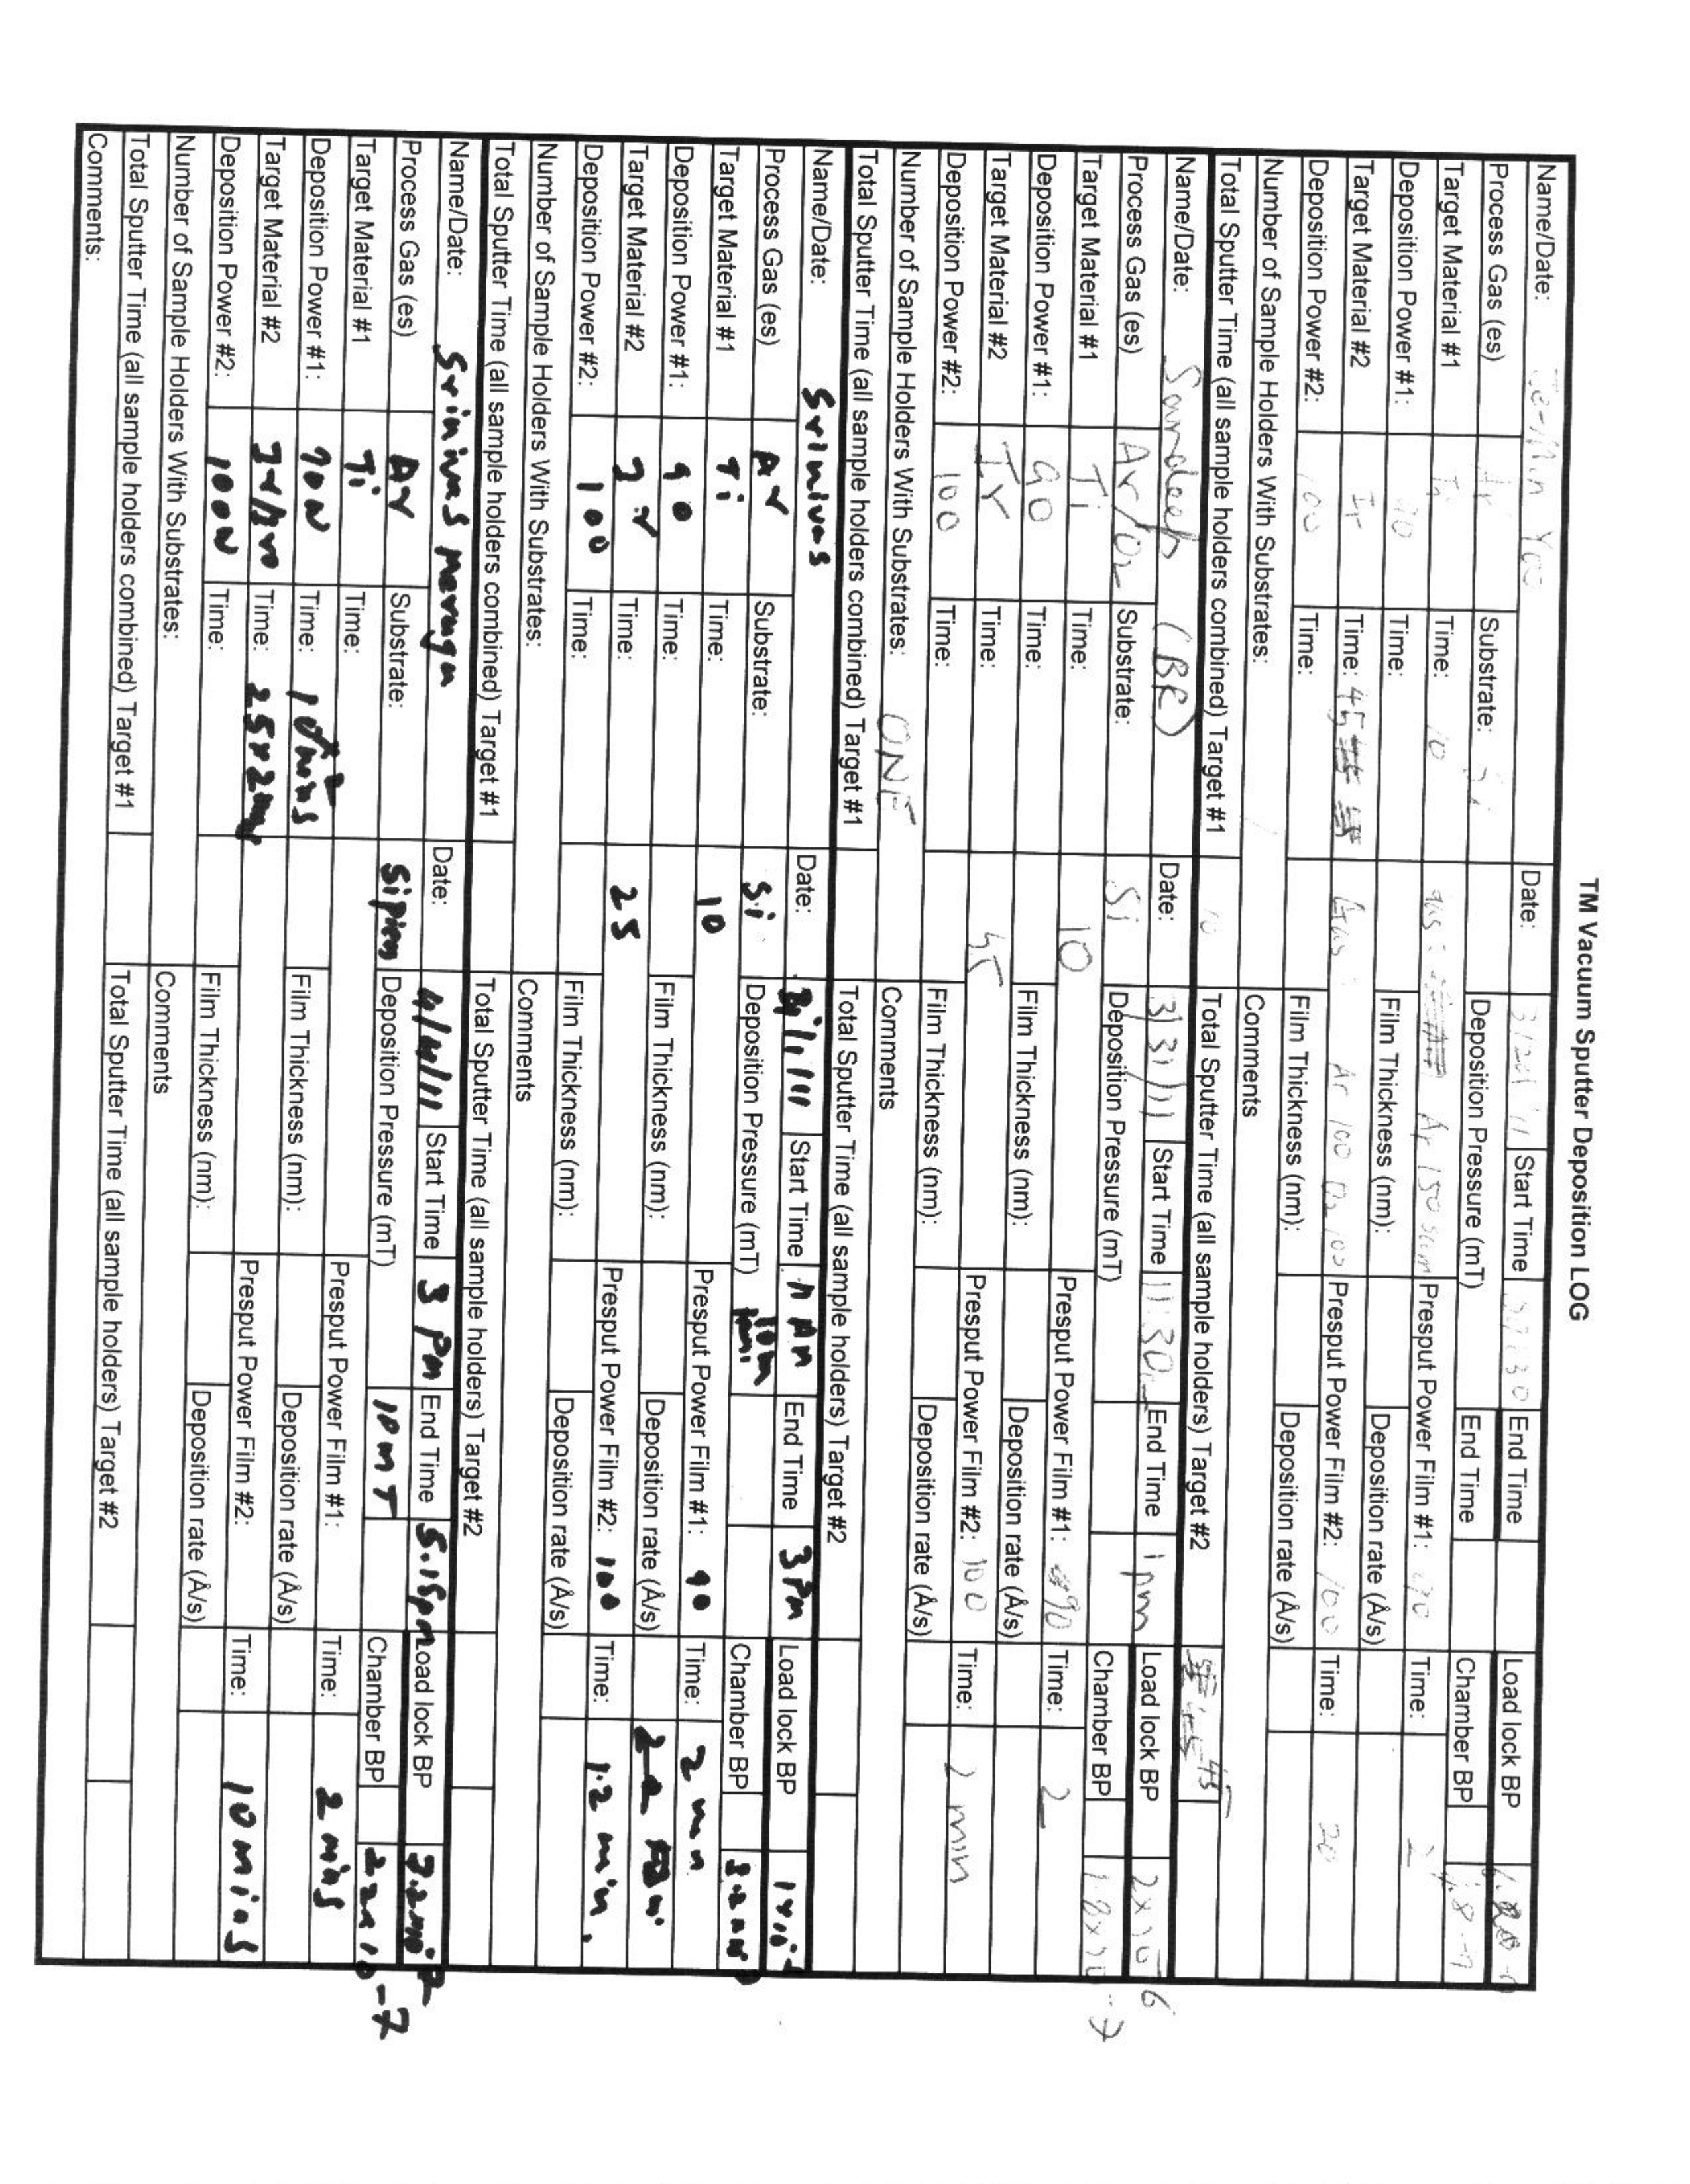 TM Vacuum Sputter Deposition LOG
Name/Date: Date: Start Time End Time Load lock BP
Process Gas (es) Substrate: Si Deposition Pressure (mT) End Time Chamber BP
Target Material #1 Time: 10 Ar 150 Presput Power Film #1: Time: 2
Deposition Power #1: 90 Time: Film Thickness (nm): Deposition rate (Å/s)
Target Material #2 Ir Time: 45 Ar 100 O2 100 Presput Power Film #2: 100 Time: 20
Deposition Power #2: 100 Time: Film Thickness (nm): Deposition rate (Å/s)
Number of Sample Holders With Substrates: Comments
Total Sputter Time (all sample holders combined) Target #1 10 Total Sputter Time (all sample holders) Target #2 45
Name/Date: Sandeep (BR) Date: 3/31/11 Start Time 11:30 End Time 1pm Load lock BP 2x10-6
Process Gas (es) Ar/O2 Substrate: Si Deposition Pressure (mT) Chamber BP 1.8x10-7
Target Material #1 Ti Time: 10 Presput Power Film #1: 90 Time: 2
Deposition Power #1: 90 Time: Film Thickness (nm): Deposition rate (Å/s)
Target Material #2 Ir Time: 45 Presput Power Film #2: 100 Time: 2 min
Deposition Power #2: 100 Time: Film Thickness (nm): Deposition rate (Å/s)
Number of Sample Holders With Substrates: ONE Comments
Total Sputter Time (all sample holders combined) Target #1 Total Sputter Time (all sample holders) Target #2
Name/Date: Srinivas Date: Start Time End Time 3 Pm Load lock BP
Process Gas (es) Ar Substrate: Si Deposition Pressure (mT) Chamber BP
Target Material #1 Ti Time: 10 Presput Power Film #1: 90 Time: 2 min
Deposition Power #1: 90 Time: Film Thickness (nm): Deposition rate (Å/s)
Target Material #2 Ir Time: 25 Presput Power Film #2: 100 Time: 12 min.
Deposition Power #2: 100 Time: Film Thickness (nm): Deposition rate (Å/s)
Number of Sample Holders With Substrates: Comments
Total Sputter Time (all sample holders combined) Target #1 Total Sputter Time (all sample holders) Target #2
Name/Date: Srinivas Merugu Date: 4/4/11 Start Time 3 Pm End Time 5.15pm Load lock BP
Process Gas (es) Ar Substrate: Deposition Pressure (mT) 10mT Chamber BP
Target Material #1 Ti Time: Presput Power Film #1: Time: 2 mins
Deposition Power #1: 90W Time: Film Thickness (nm): Deposition rate (Å/s)
Target Material #2 Time: Presput Power Film #2: Time: 10 mins
Deposition Power #2: 100W Time: Film Thickness (nm): Deposition rate (Å/s)
Number of Sample Holders With Substrates: Comments
Total Sputter Time (all sample holders combined) Target #1 Total Sputter Time (all sample holders) Target #2
Comments: